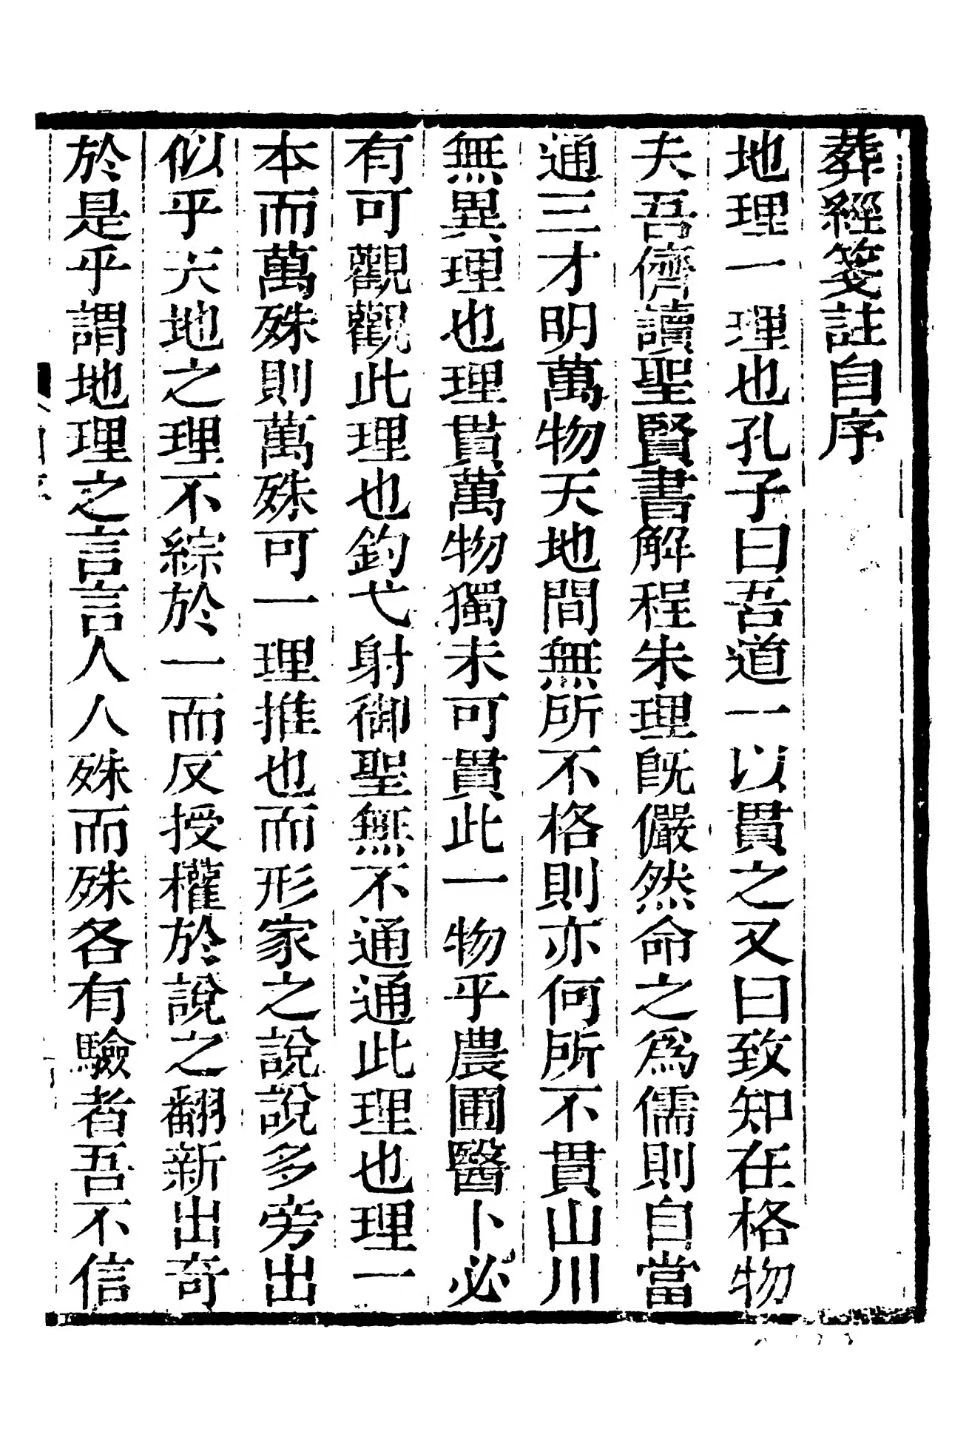 葬經箋註自序
地理一理也孔子曰吾道一以貫之又曰致知在格物
夫吾儕讀聖賢書解程朱理旣儼然命之爲儒則自當
通三才明萬物天地間無所不格則亦何所不貫山川
無異理也理貫萬物獨未可貫此一物乎農圃醫卜必
有可觀觀此理也釣弋射御聖無不通通此理也理一
本而萬殊則萬殊可一理推也而形家之說說多旁出
似乎天地之理不綜於一而反授權於說之翻新出奇
於是乎謂地理之言言人人殊而殊各有驗者吾不信